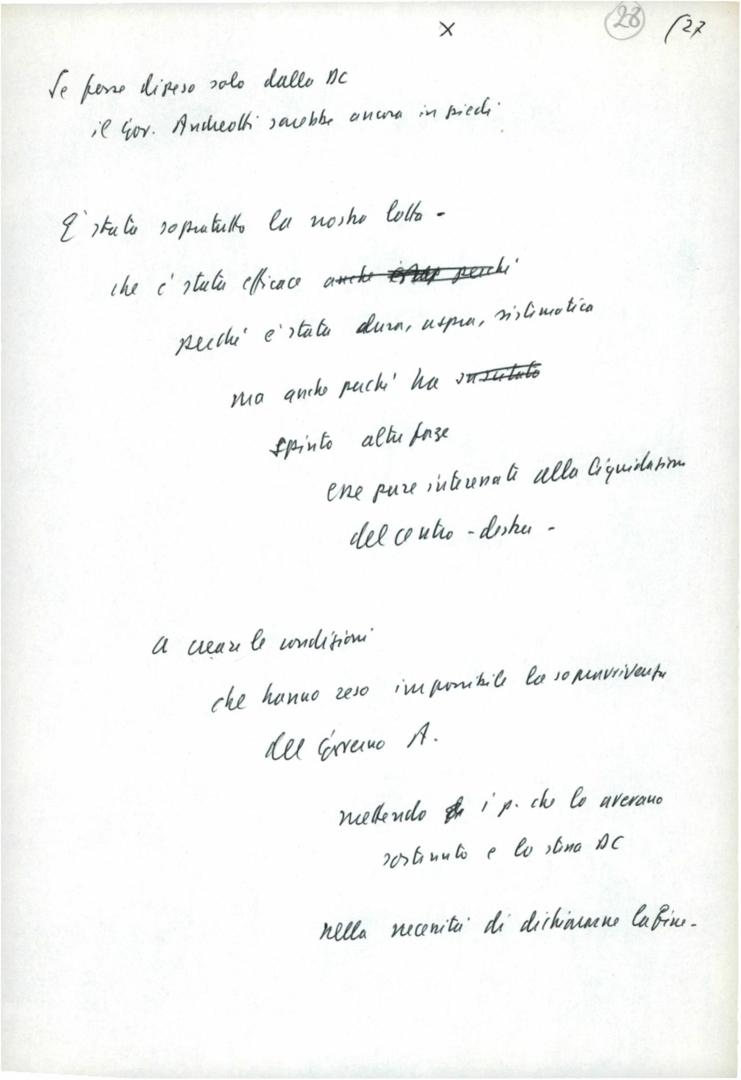 X 28 (27
Se fosse dipeso solo dalla DC
il Gov. Andreotti sarebbe ancora in piedi.
E' stata sopratutto la nostra lotta -
che è stata efficace anche perché
perché è stata dura, aspra, sistematica
ma anche perché ha suscitato
spinto altre forze
che pure interessate alla liquidazione
del centro-destra -
a creare le condizioni
che hanno reso impossibile la sopravvivenza
del Governo A.
mettendo i p. che lo avevano
sostenuto e la stessa DC
nella necessità di dichiararne la fine -